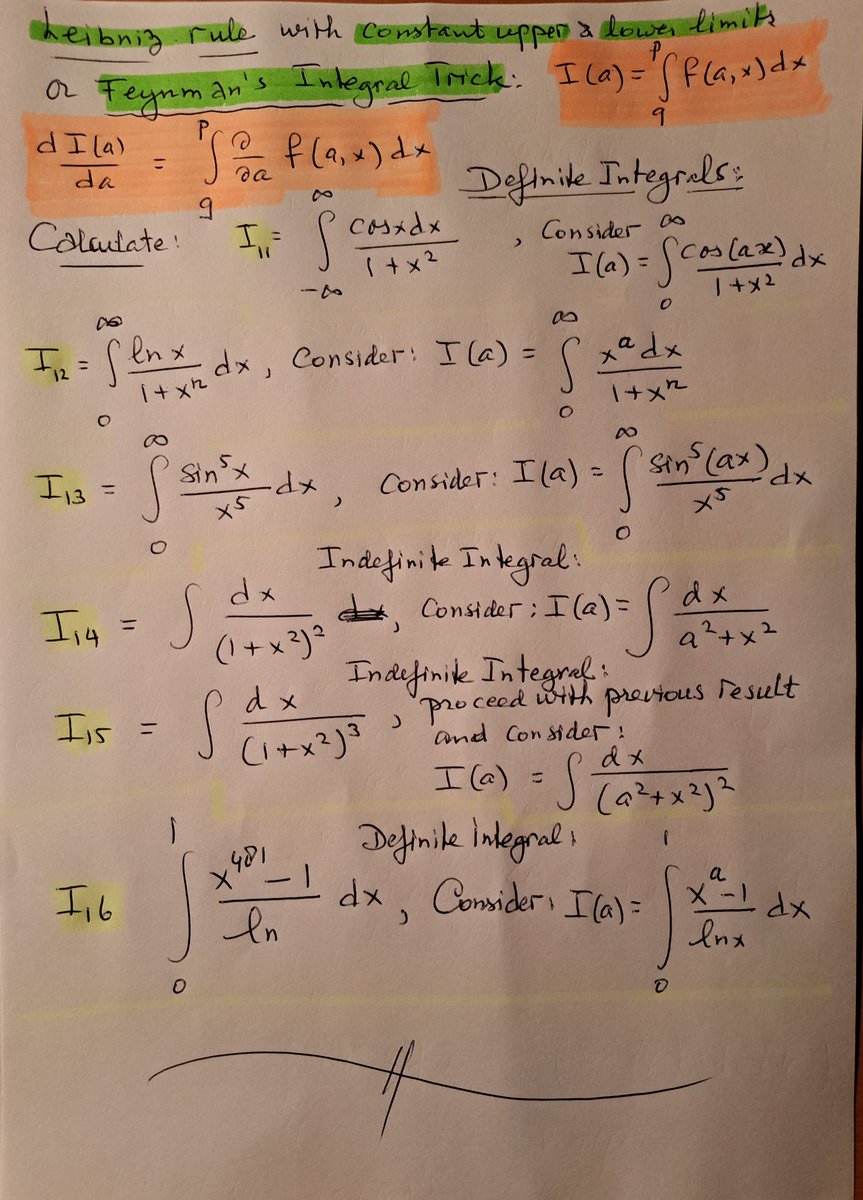 Leibniz rule with constant upper & lower limits
or Feynman's Integral Trick: I(a) = ∫_q^p f(a,x) dx
dI(a)/da = ∫_q^p ∂/∂a f(a,x) dx
Definite Integrals:
Calculate: I₁₁ = ∫_{-∞}^{∞} cosx dx / (1+x²) , Consider I(a) = ∫_0^∞ cos(ax)/(1+x²) dx
I₁₂ = ∫_0^∞ ln x/(1+xⁿ) dx, Consider: I(a) = ∫_0^∞ x^a dx/(1+xⁿ)
I₁₃ = ∫_0^∞ sin⁵x/x⁵ dx, Consider: I(a) = ∫_0^∞ sin⁵(ax)/x⁵ dx
Indefinite Integral:
I₁₄ = ∫ dx/(1+x²)² , Consider: I(a) = ∫ dx/(a²+x²)
Indefinite Integral:
I₁₅ = ∫ dx/(1+x²)³ , proceed with previous result
and consider:
I(a) = ∫ dx/(a²+x²)²
Definite Integral:
I₁₆ ∫_0^1 (x^481 - 1)/ln dx, Consider: I(a) = ∫_0^1 (x^a - 1)/lnx dx